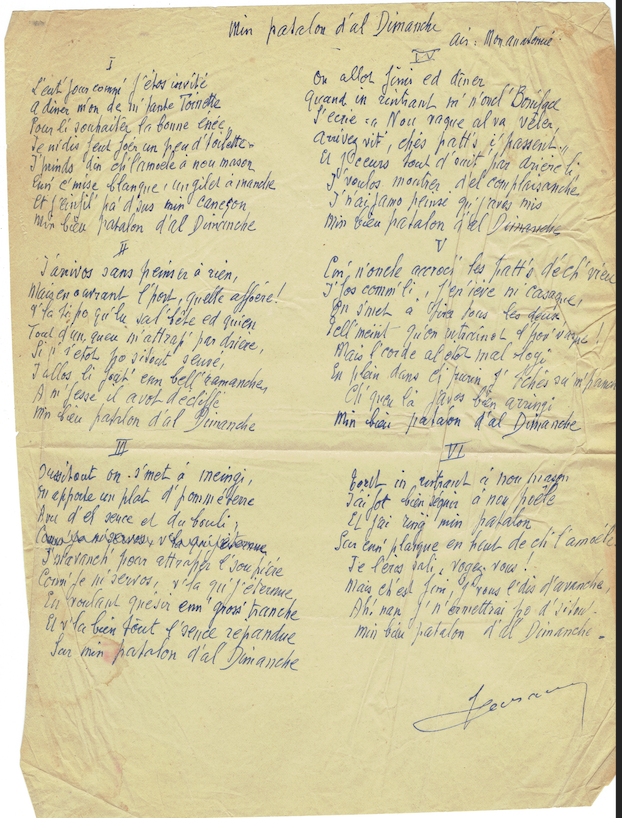 Min patalon d'al Dimanche
Air: Mon anatomie
I
L'eut' jour commé j'étos invité
A diner m'on de m'tante Toinette
Pour li souhaiter la bonne énée,
Je m'dis feut foér un peu d'toilette.
J'prinds din ch'l'amoele à nou mason
Em' c'mise blanque, un gilet à manche
Et j'enfil' pa d'sus min caneçon
Min bieu patalon d'al Dimanche
II
J'arivos sans peinser à rien,
Mais en ouvrant l'port, quelle affoère!
V'la ti po qu'lu sal' bête ed quien
Tout d'un queu m'attrap' par drière,
Si j' s'étot po sitout seuvé,
J'allos li fout' enn bell' ramanche,
A m'fesse il avot déchiffé
Min bieu patalon d'al Dimanche
III
Aussitout on s'met à meingi,
En apporte un plat d'pomm'ed'terre
Avu d'el seuce et du bouli,
J'm'avanch' pour attraper l'soupière
Comm' je m'servos, v'la qu'j'éternue
En voulant queusir enn' gross' tranche
Et v'la bien tout l'seuce répandue
Sur min patalon d'al Dimanche
IV
On allot fini ed diner
Quand in rintrant m'n'oncl' Bonifac
S'écrie: "A nou vaque al va vêler,
Arrivez vit', chés patt's i passent,
Et l'coeurs tout d'suit' par drière li
J'voulos montrer d'el complaisanche
J'n'ai jamo peinsé qu'j'avos mis
Min bieu patalon d'al Dimanche
V
Em' n'oncle accroch' les patt's déch'vieu
J'fos comm'li, j'enlève m' casaque,
On s'met à tirer tous les deux
Tell'meint qu'on intraînot l'pov' vaque!
Mais l'corde al étot mal
En plein dans ch'purin, j'
Ch'queu là j'avos bien arringi
Min bieu patalon d'al Dimanche
VI
in rintrant à nou mason
J'ai fot bien séquir à nou poêle
Et j'ai ringé min patalon
Sur enn' planque en heut de ch'l'amoéle
Je l'éros sali, voyez-vous!
Mais ch'est fini, j'vous l'dis d'avanche,
Ah! nan, j'n'ermettrai po d'sitout
Min bieu patalon d'al Dimanche.